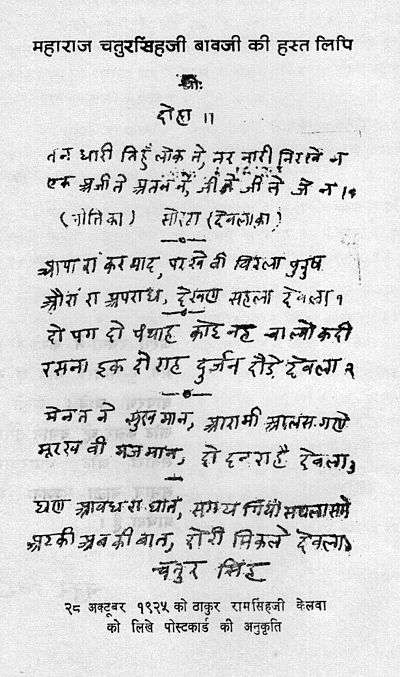 महाराज चतुरसिंहजी बावजी की हस्त लिपि
श्रीः
दोहा ॥
तन धारी तिहुँ लोक ने, नर नारी निरखे न
एक अजीते अतनने, जी ने जी ने जे न १
(नीतिका) सोरठा (देवलाका)
आपा रां कर याद, परखे वी विरला पुरुष
औरां रा अपराध, देखण सहला देवला १
दो पग दो पंथाह कोई नह चाल्यो कदी
रसना इक दो राह दुर्जन दौड़े देवला २
मेनत ने सुख मान, आरामी आलस गणे
मूरख वी मजमान, दो दन रा है देवला ३
घण अवधरा घाते, समय गियाँ सघला समे
अटकी अबकी वात, दोरी निकले देवला
चतुर सिंह
२८ अक्टूबर १९२५ को ठाकुर रामसिंहजी केलवा
को लिखे पोस्टकार्ड की अनुकृति